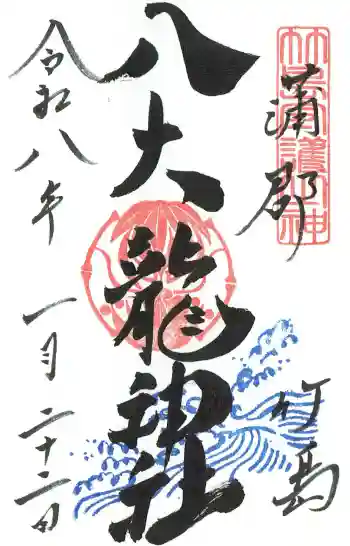 蒲郡
竹島
八大龍神社
令和八年 一月二十二日